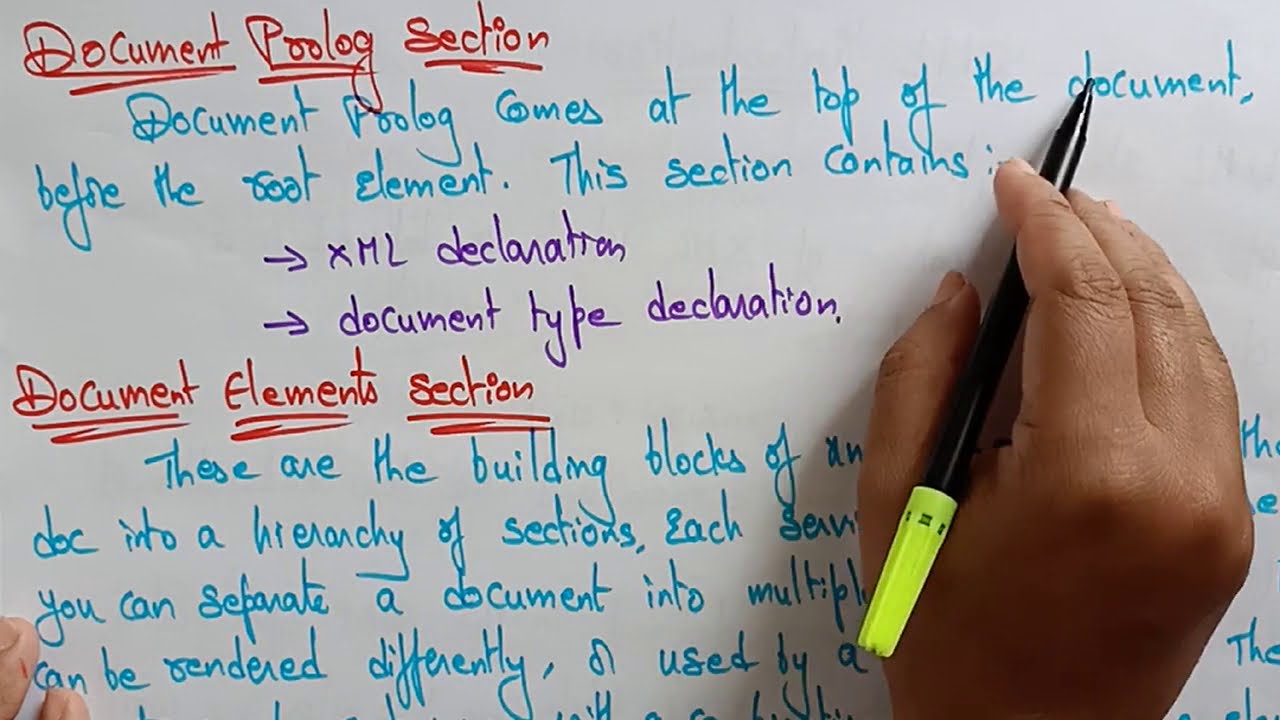 Document Prolog Section
Document Prolog Comes at the top of the document,
before the root Element. This section contains :-
→ XML declaration
→ document type declaration.
Document Elements Section
These are the building blocks of an
doc into a hierarchy of sections, Each
you can separate a document into
can be rendered differently, or used by a The